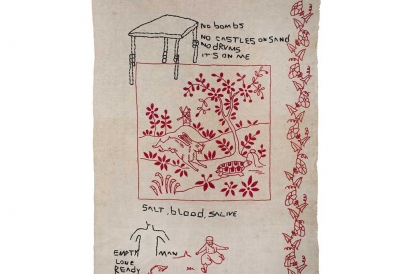 NO bOMBS
NO CASTLES ON SAND
NO DRUMS
IT'S ON ME
SALT, blood, SALINE
EMPTY MAN
LOVE
READY